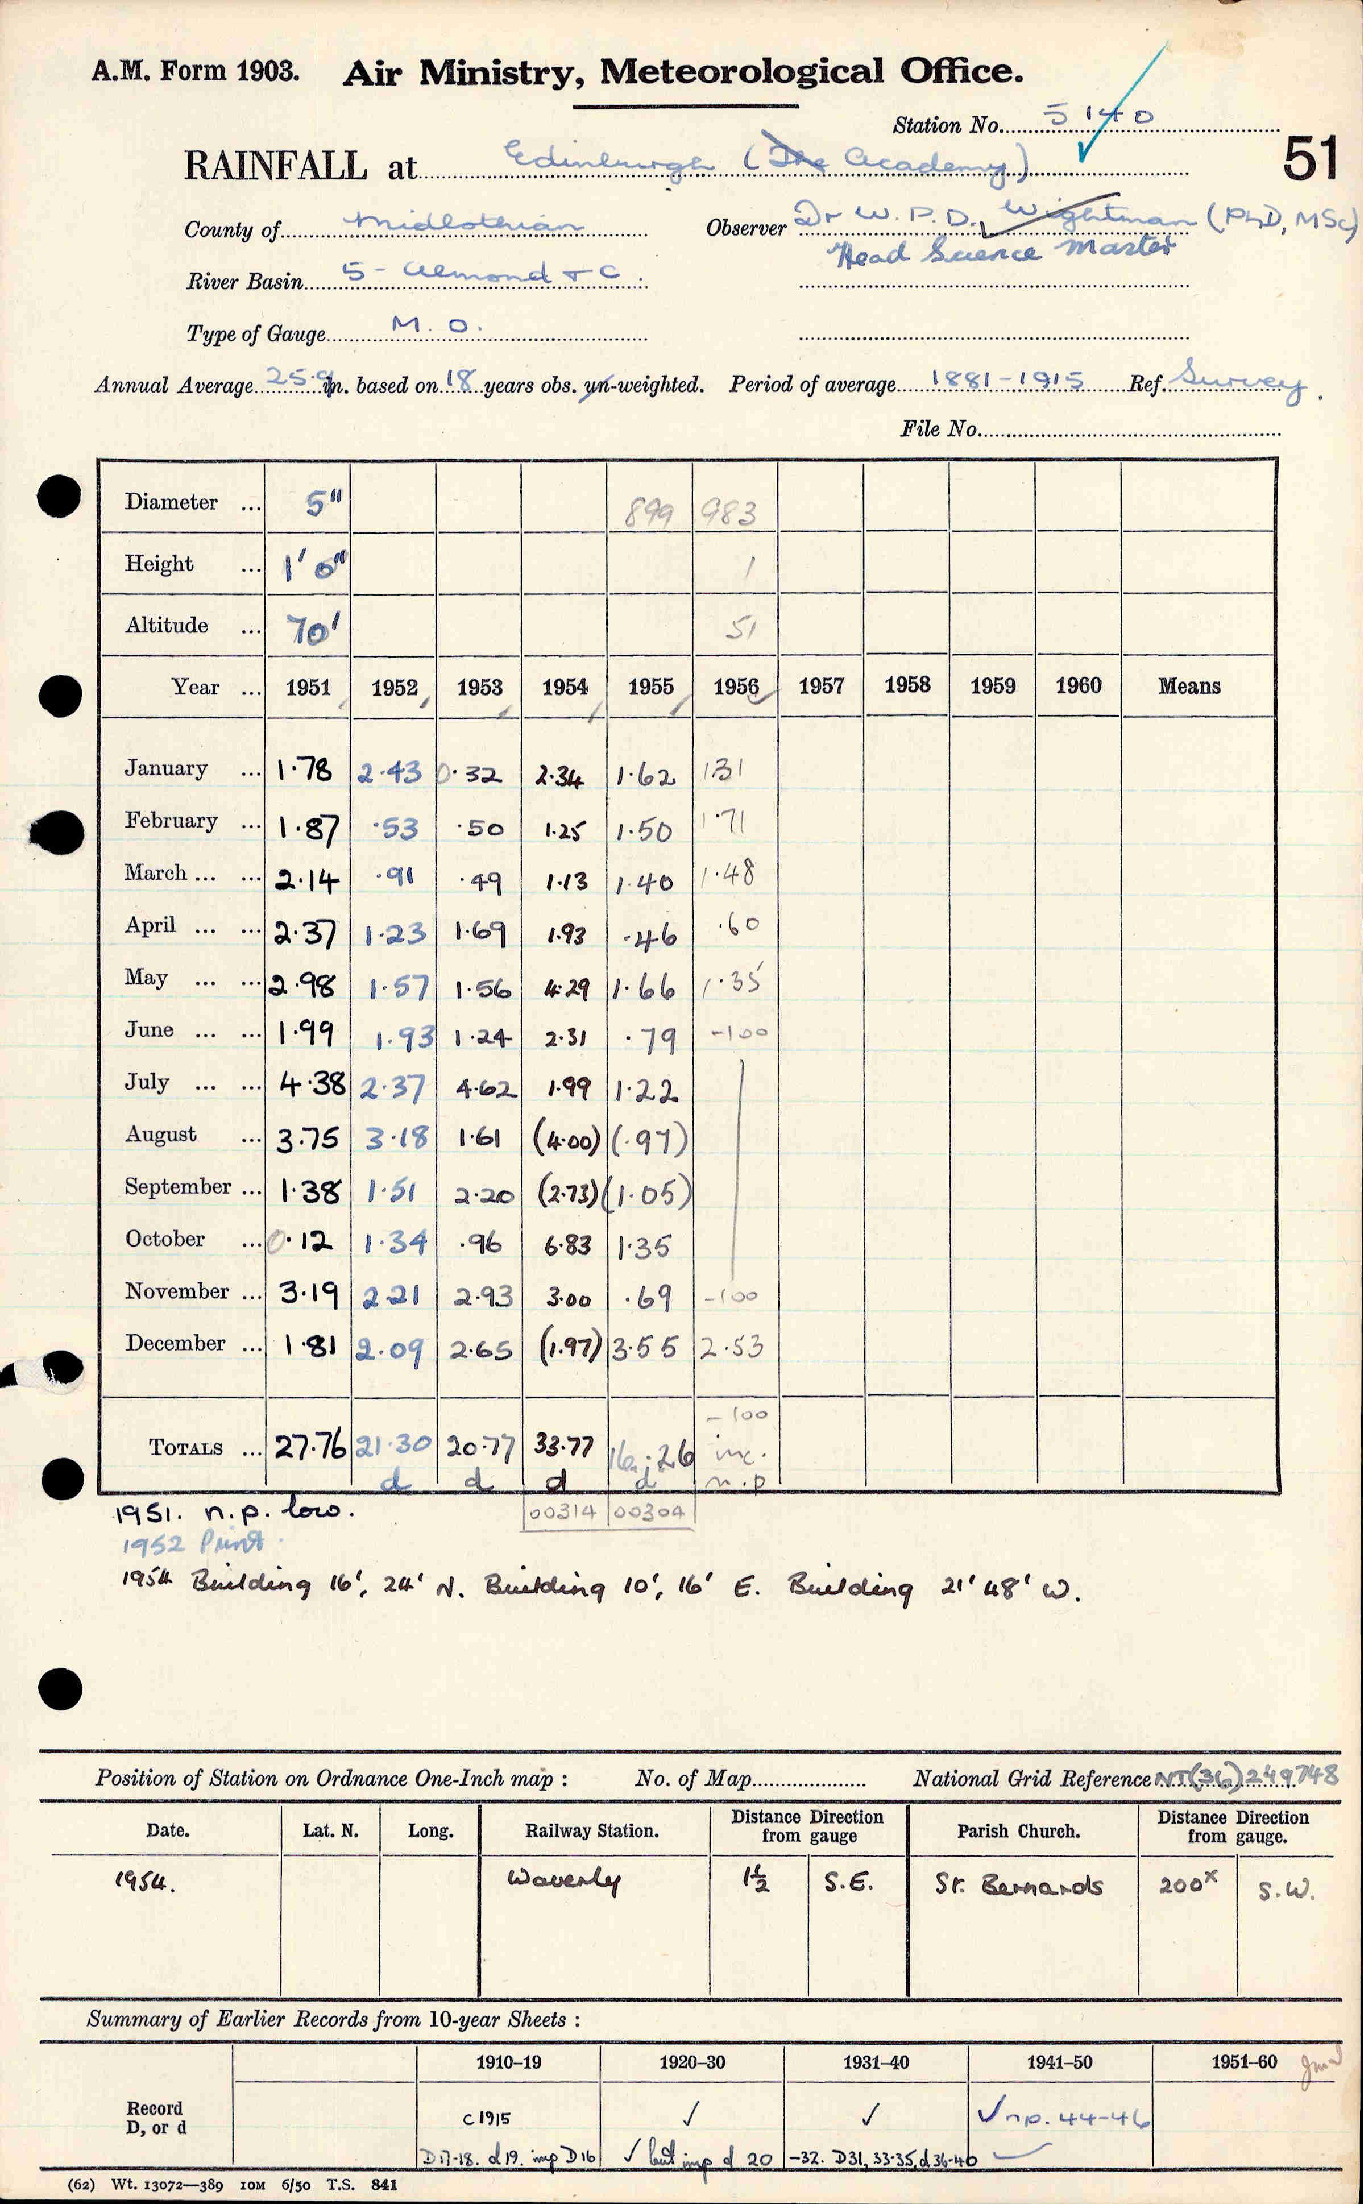 A.M. Form 1903. Air Ministry, Meteorological Office.
Station No. 5140
RAINFALL at Edinburgh (The Academy) 51
County of Midlothian Observer Dr W. P. D. Wightman (PhD, MSc)
Head Science Master
River Basin 5 - Almond & C
Type of Gauge M. O.
Annual Average 25.9 in. based on 18 years obs. un-weighted. Period of average 1881-1915 Ref. Survey.
File No.
Diameter ... 5" 899 983
Height ... 1' 0" 1
Altitude ... 70' 51
Year ... 1951 1952 1953 1954 1955 1956 1957 1958 1959 1960 Means
January ... 1·78 2·43 0·32 2·34 1·62 1·31
February ... 1·87 ·53 ·50 1·25 1·50 1·71
March ... ... 2·14 ·91 ·49 1·13 1·40 1·48
April ... ... 2·37 1·23 1·69 1·93 ·46 ·60
May ... ... 2·98 1·57 1·56 4·29 1·66 1·35
June ... ... 1·99 1·93 1·24 2·31 ·79 -100
July ... ... 4·38 2·37 4·62 1·99 1·22
August ... 3·75 3·18 1·61 (4·00) (·97)
September ... 1·38 1·51 2·20 (2·73) (1·05)
October ... 0·12 1·34 ·96 6·83 1·35
November ... 3·19 2·21 2·93 3·00 ·69 -100
December ... 1·81 2·09 2·65 (1·97) 3·55 2·53
-100
TOTALS ... 27·76 21·30 20·77 33·77 16·26 inc.
d d d d n.p
00314 00304
1951. n.p. low.
1952 Print.
1954 Building 16', 24' N. Building 10', 16' E. Building 21' 48' W.
Position of Station on Ordnance One-Inch map : No. of Map National Grid Reference NT(36)249748
Date. Lat. N. Long. Railway Station. Distance Direction from gauge Parish Church. Distance Direction from gauge.
1954. Waverly 1½ S.E. St. Bernards 200x S.W.
Summary of Earlier Records from 10-year Sheets :
1910–19 1920–30 1931–40 1941–50 1951–60
Record D, or d c1915 ✓ ✓ ✓ n.p. 44-46
D17-18. d19. imp D16 ✓ but imp d 20 -32. D31, 33-35, d36-40
(62) Wt. 13072—389 10M 6/50 T.S. 841